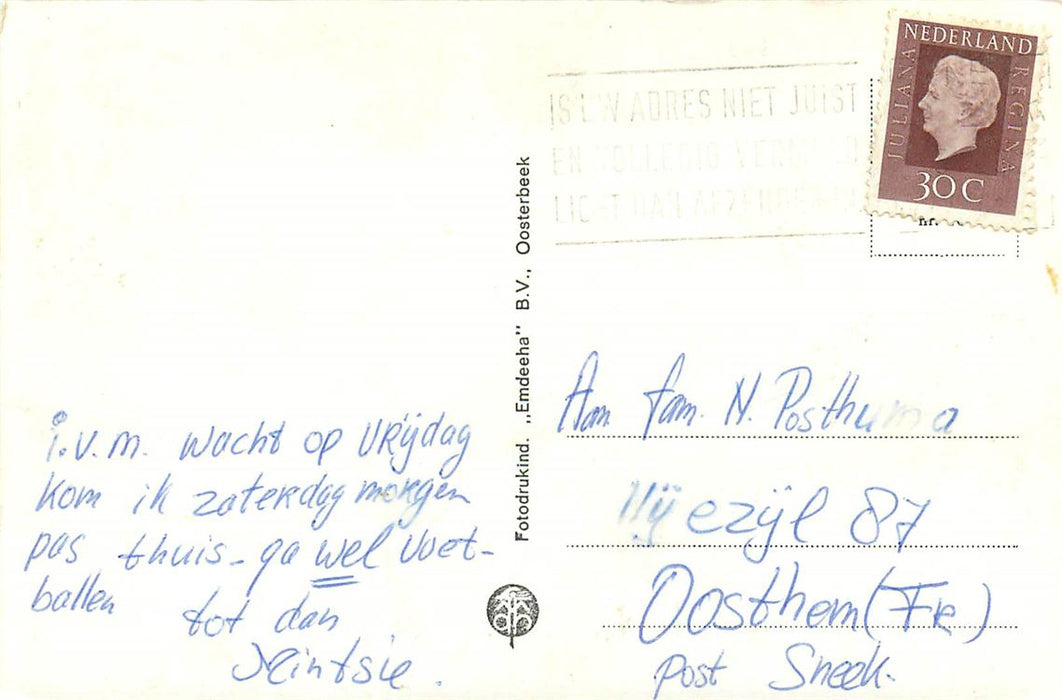 i.v.m. wacht op vrijdag
kom ik zaterdag morgen
pas thuis - ga wel voet-
ballen
tot dan
Fotodrukind. „Emdeeha" B.V., Oosterbeek
IS UW ADRES NIET JUIST
EN VOLLEDIG VERMELD
LICHT DAN AFZENDER IN
NEDERLAND
JULIANA
REGINA
30 C
Aan fam. N. Posthuma
87
Oosthem (Fr)
post Sneek.